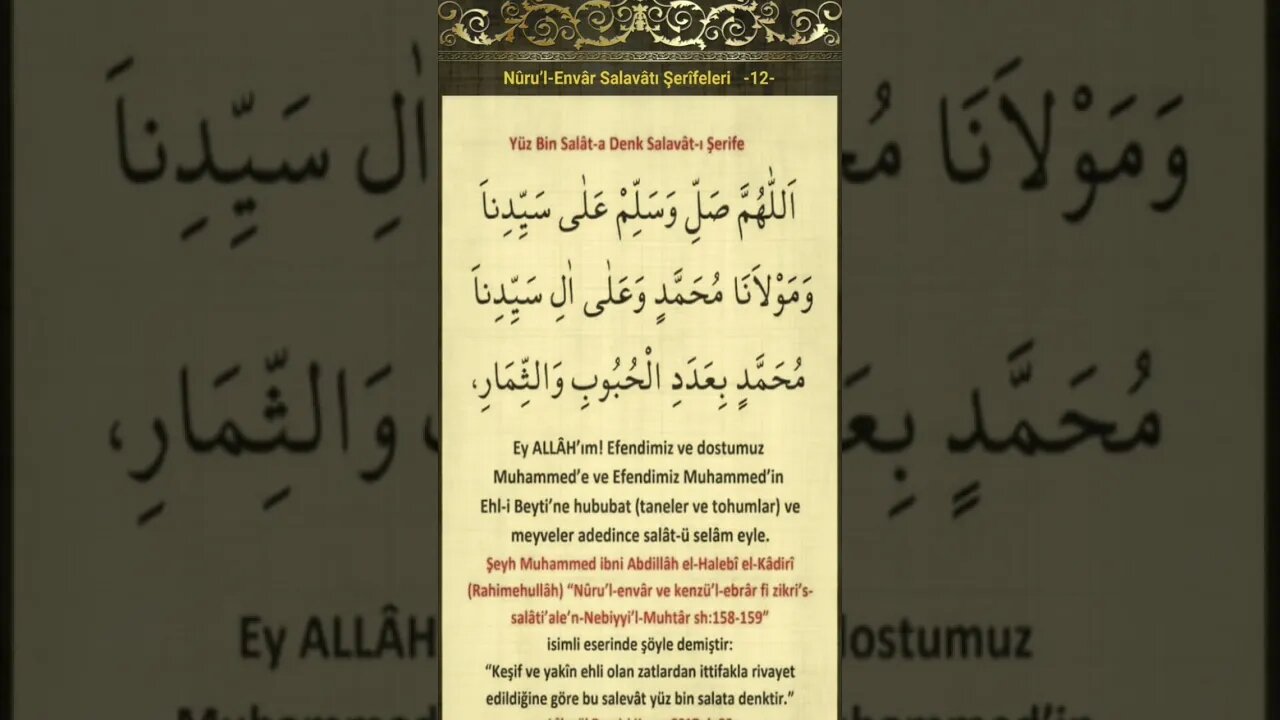 Nûru’l-Envâr Salavâtı Şerîfeleri -12-
Yüz Bin Salât-a Denk Salavât-ı Şerife
اَللّٰهُمَّ صَلِّ وَسَلِّمْ عَلٰى سَيِّدِناَ
وَمَوْلاَنَا مُحَمَّدٍ وَعَلٰى اٰلِ سَيِّدِناَ
مُحَمَّدٍ بِعَدَدِ الْحُبُوبِ وَالثِّمَارِ،
Ey ALLÂH’ım! Efendimiz ve dostumuz
Muhammed’e ve Efendimiz Muhammed’in
Ehl-i Beyti’ne hububat (taneler ve tohumlar) ve
meyveler adedince salât-ü selâm eyle.
Şeyh Muhammed ibni Abdillâh el-Halebî el-Kâdirî
(Rahimehullâh) “Nûru’l-envâr ve kenzü’l-ebrâr fi zikri’s-
salâti’ale’n-Nebiyyi’l-Muhtâr sh:158-159”
isimli eserinde şöyle demiştir:
“Keşif ve yakîn ehli olan zatlardan ittifakla rivayet
edildiğine göre bu salevât yüz bin salata denktir.”